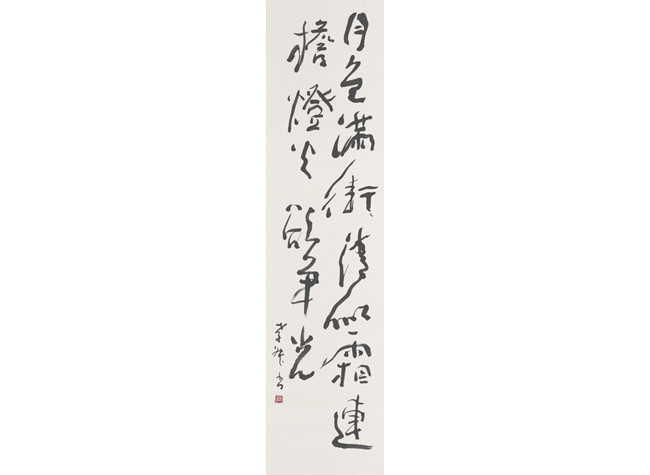 月色滿街清似霜連
檐燈火欲爭光
書